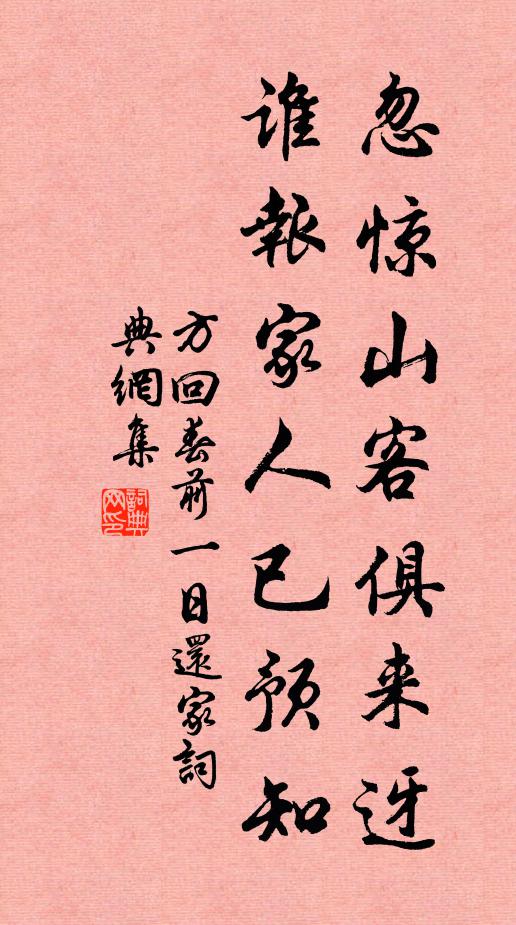 忽惊山客俱来迓
谁報家人已预知
方回春前一日還家詞
典網集
詞典网印